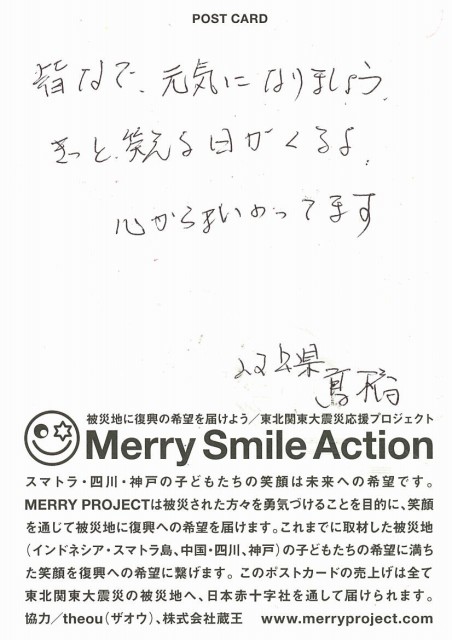 POST CARD
皆なで、元気になりましょう。
きっと、笑える日がくるよ。
心からまいのってます
県 高橋
被災地に復興の希望を届けよう／東北関東大震災応援プロジェクト
Merry Smile Action
スマトラ・四川・神戸の子どもたちの笑顔は未来への希望です。
MERRY PROJECTは被災された方々を勇気づけることを目的に、笑顔
を通じて被災地に復興への希望を届けます。これまでに取材した被災地
（インドネシア・スマトラ島、中国・四川、神戸）の子どもたちの希望に満ち
た笑顔を復興への希望に繋げます。このポストカードの売上げは全て
東北関東大震災の被災地へ、日本赤十字社を通して届けられます。
協力／theou（ザオウ）、株式会社蔵王 www.merryproject.com